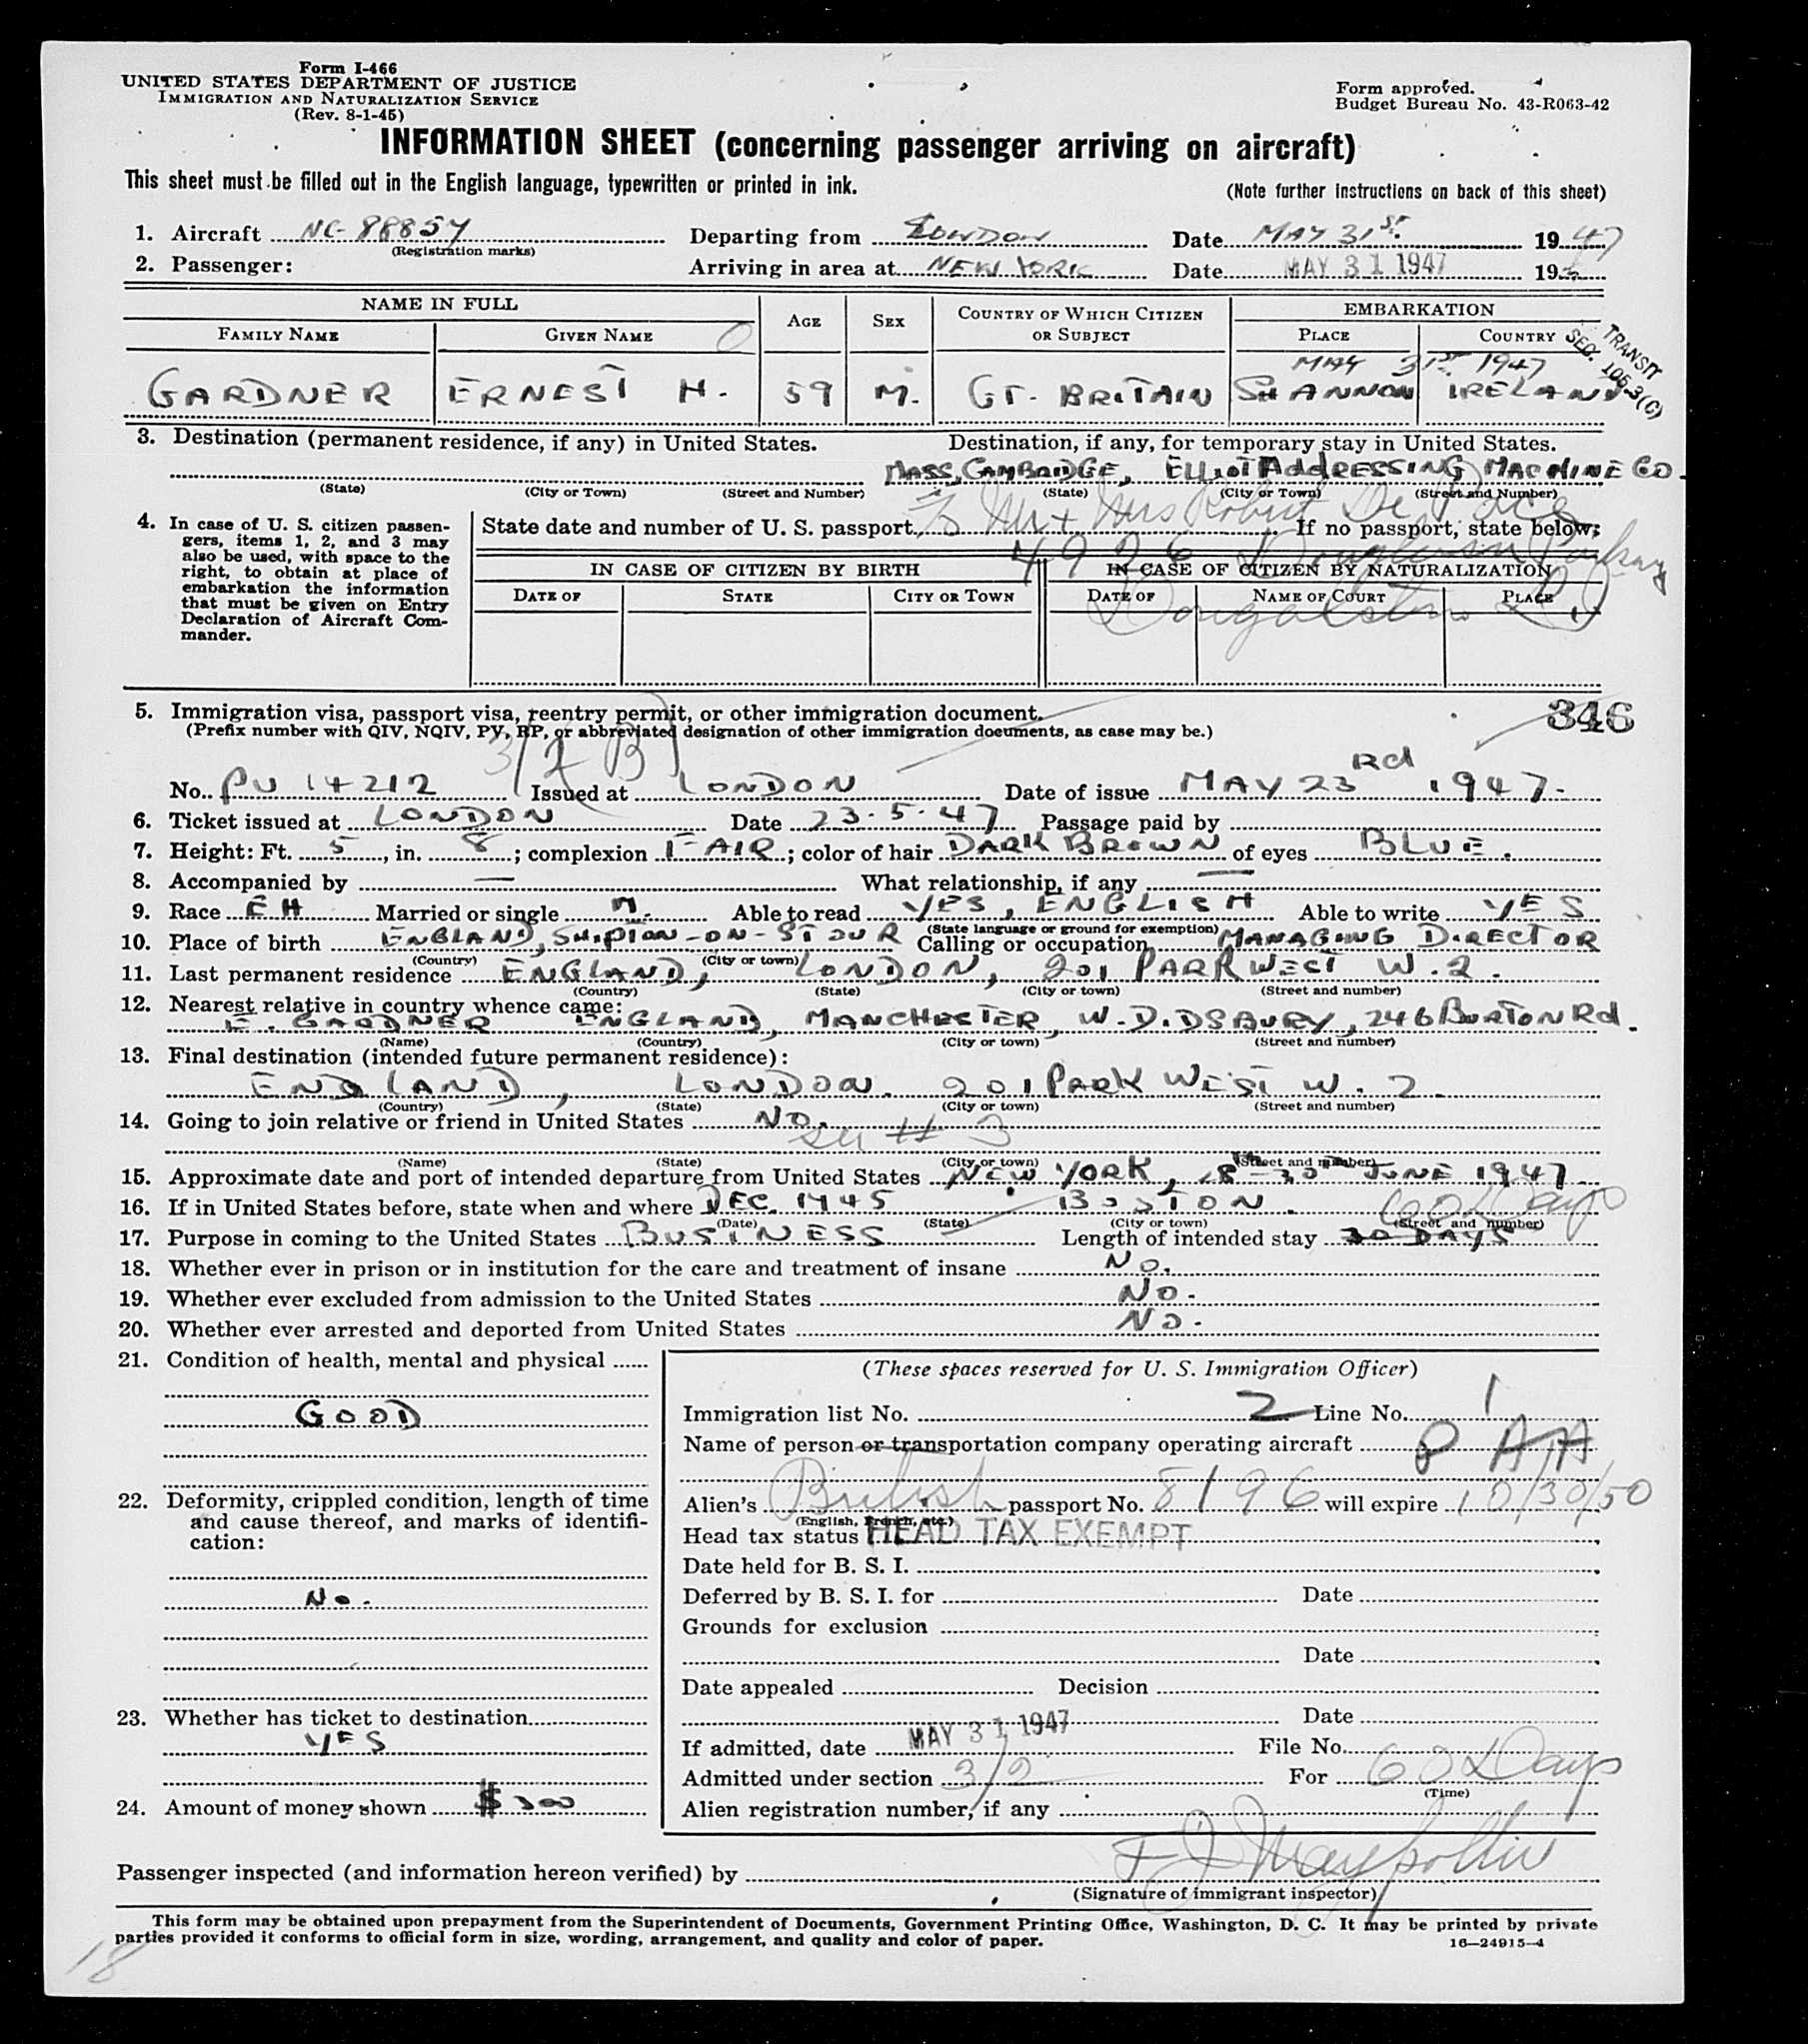 Form I-466
UNITED STATES DEPARTMENT OF JUSTICE
IMMIGRATION AND NATURALIZATION SERVICE
(Rev. 8-1-45)
Form approved.
Budget Bureau No. 43-R063-42
INFORMATION SHEET (concerning passenger arriving on aircraft)
This sheet must be filled out in the English language, typewritten or printed in ink.
(Note further instructions on back of this sheet)
1. Aircraft NC-88857 Departing from LONDON Date MAY 31ST. 1947
(Registration marks)
2. Passenger: Arriving in area at NEW YORK Date MAY 31 1947 19
NAME IN FULL AGE SEX COUNTRY OF WHICH CITIZEN OR SUBJECT EMBARKATION
FAMILY NAME GIVEN NAME PLACE COUNTRY
TRANSIT
SEC. 105-3(C)
MAY 31ST 1947
GARDNER ERNEST H. 59 M. GT. BRITAIN SHANNON IRELAND
3. Destination (permanent residence, if any) in United States. Destination, if any, for temporary stay in United States.
MASS, CAMBRIDGE, ELLIOT ADDRESSING MACHINE CO.
(State) (City or Town) (Street and Number) (State) (City or Town) (Street and Number)
4. In case of U. S. citizen passengers, items 1, 2, and 3 may also be used, with space to the right, to obtain at place of embarkation the information that must be given on Entry Declaration of Aircraft Commander.
State date and number of U. S. passport, If no passport, state below:
Mr + Mrs Robert De
IN CASE OF CITIZEN BY BIRTH IN CASE OF CITIZEN BY NATURALIZATION
DATE OF STATE CITY OR TOWN DATE OF NAME OF COURT PLACE
5. Immigration visa, passport visa, reentry permit, or other immigration document.
346
(Prefix number with QIV, NQIV, PV, RP, or abbreviated designation of other immigration documents, as case may be.)
3/2 B
No. PV 14212 Issued at LONDON Date of issue MAY 23Rd 1947.
6. Ticket issued at LONDON Date 23.5.47 Passage paid by
7. Height: Ft. 5, in. 8; complexion FAIR; color of hair DARK BROWN of eyes BLUE.
8. Accompanied by — What relationship, if any —
9. Race EH Married or single M. Able to read YES, ENGLISH Able to write YES
(State language or ground for exemption)
10. Place of birth ENGLAND, SHIPTON-ON-STOUR Calling or occupation MANAGING DIRECTOR
(Country) (City or town)
11. Last permanent residence ENGLAND, LONDON, 201 PARK WEST W.2.
(Country) (State) (City or town) (Street and number)
12. Nearest relative in country whence came:
E. GARDNER ENGLAND, MANCHESTER, W. DIDSBURY, 246 BURTON Rd.
(Name) (Country) (City or town) (Street and number)
13. Final destination (intended future permanent residence):
ENGLAND, LONDON. 201 PARK WEST W.2.
(Country) (State) (City or town) (Street and number)
14. Going to join relative or friend in United States NO.
see # 3
(Name) (State) (City or town) (Street and number)
15. Approximate date and port of intended departure from United States NEW YORK, 28-30TH JUNE 1947
16. If in United States before, state when and where DEC. 1945 BOSTON. 60 Days
(Date) (State) (City or town) (Street and number)
17. Purpose in coming to the United States BUSINESS Length of intended stay 30 DAYS
18. Whether ever in prison or in institution for the care and treatment of insane NO.
19. Whether ever excluded from admission to the United States NO.
20. Whether ever arrested and deported from United States NO.
21. Condition of health, mental and physical
GOOD
22. Deformity, crippled condition, length of time and cause thereof, and marks of identification:
NO.
23. Whether has ticket to destination
YES
24. Amount of money shown $300
(These spaces reserved for U. S. Immigration Officer)
Immigration list No. 2 Line No. 1
Name of person or transportation company operating aircraft P A A
Alien's British passport No. 8196 will expire 10/30/50
(English, French, etc.)
Head tax status HEAD TAX EXEMPT
Date held for B. S. I.
Deferred by B. S. I. for Date
Grounds for exclusion
Date
Date appealed Decision
Date
If admitted, date MAY 31 1947 File No.
Admitted under section 3/2 For 60 Days
(Time)
Alien registration number, if any
Passenger inspected (and information hereon verified) by
(Signature of immigrant inspector)
This form may be obtained upon prepayment from the Superintendent of Documents, Government Printing Office, Washington, D. C. It may be printed by private
parties provided it conforms to official form in size, wording, arrangement, and quality and color of paper.
16—24915-4
18